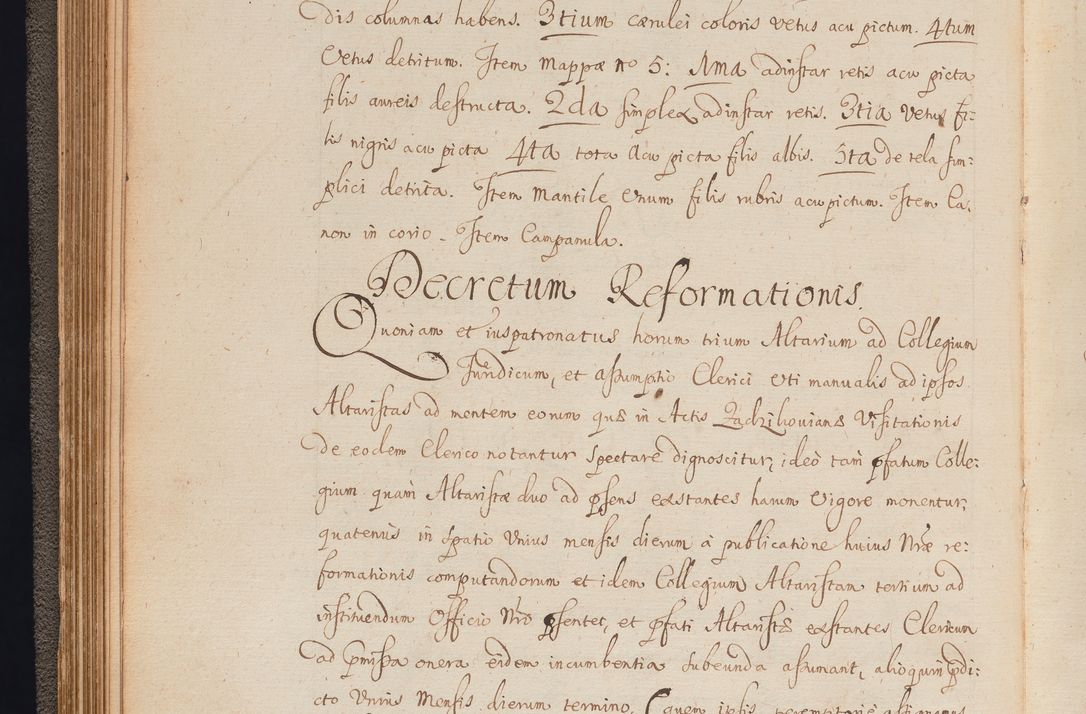 dis columnas habens. 3tium cærulei coloris vetus acu pictum. 4tum
Vetus detritum. Item mappæ no 5: 1ma adinstar retis acu picta
filis aureis destructa. 2da simplex adinstar retis. 3tia vetus fi:
lis nigris acu picta 4ta tota acu picta filis albis. 5ta de tela sim:
plici detrita. Item Mantile Unum filis rubris acu pictum. Item Ca:
non in corio. Item Campanula.
Decretum Reformationis.
Quoniam et iuspatronatus horum trium Altarium ad Collegium
Juridicum, et assumptio Clerici uti manualis ad ipsos
Altaristas ad mentem eorum quæ in Actis Zadzikovianæ Visitationis
de eodem Clerico notantur spectare dignoscitur; ideò tam pfatum Colle:
gium quam Altaristæ duo ad psens exstantes harum Vigore monentur,
quatenus in spatio Unius mensis dierum à publicatione huius Nræ re:
formationis computandorum et idem Collegium Altaristam tertium ad
instituendum Officio Nro psentet, et pfati Altaristæ exstantes Clericum
ad pmissa onera eidem incumbentia subeunda assumant, alioquin pdi:
cto Unius Mensis dierum termino,